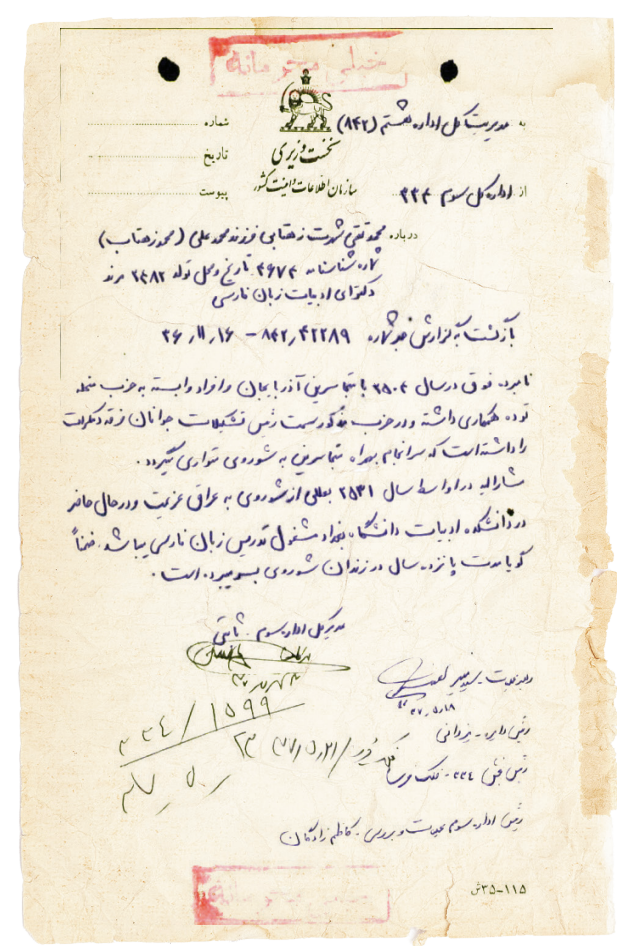 خیلی محرمانه
به مدیریت کل اداره هشتم (۸۴۲)
شماره
نخست وزیری
تاریخ
سازمان اطلاعات و امنیت کشور
از اداره کل سوم ۳۳۴
پیوست
درباره محمد تقی شهرت زهتابی فرزند محمد علی (محمود زهتاب)
شماره شناسنامه ۴۶۷۴ تاریخ و محل تولد ۲۴۸۲ مرند
دکترای ادبیات زبان فارسی
بازگشت به گزارش خبر شماره ۸۴۲٫۴۲۲۸۹ - ۳۶٫۱۱٫۱۶
نامبرده فوق در سال ۲۵۰۴ با متجاسرین آذربایجان و افراد وابسته به حزب منحله
توده همکاری داشته و در حزب مذکور سمت رئیس تشکیلات جوانان فرقه دمکرات
را داشته است که سرانجام بهمراه متجاسرین به شوروی متواری میگردد.
مشارالیه در اواسط سال ۲۵۳۱ بعللی از شوروی به عراق عزیمت و در حال حاضر
در دانشکده ادبیات دانشگاه بغداد مشغول تدریس زبان فارسی میباشد. ضمناً
گویا مدت پانزده سال در زندان شوروی بسر میبرده است.
مدیر کل اداره سوم - ثابتی
رهبر عملیات -
۳۷٫۵٫۱۸
۳۳۴/۱۵۹۹
رئیس دایره - یزدانی
۳۷٫۵٫۲۱
رئیس بخش ۳۳۴ -
رئیس اداره سوم عملیات و بررسی -
خیلی محرمانه
۳۵-۱۱۵ش